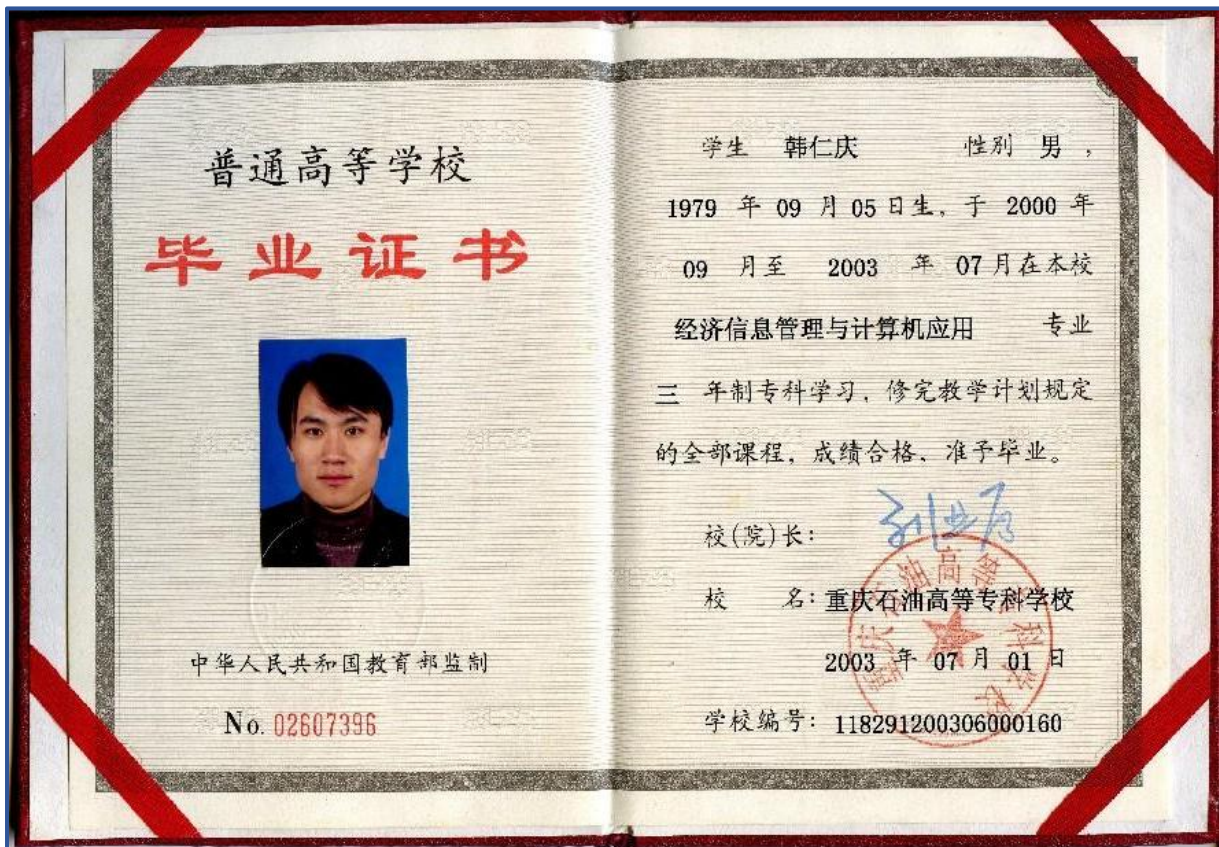 普通高等学校
毕业证书
中华人民共和国教育部监制
No. 02607396
学生 韩仁庆 性别 男，
1979 年 09 月 05 日生，于 2000 年
09 月至 2003 年 07 月在本校
经济信息管理与计算机应用 专业
三 年制专科学习，修完教学计划规定
的全部课程，成绩合格、准予毕业。
校(院)长：
校 名：重庆石油高等专科学校
2003 年 07 月 01 日
学校编号：118291200306000160
重庆石油高等专科学校